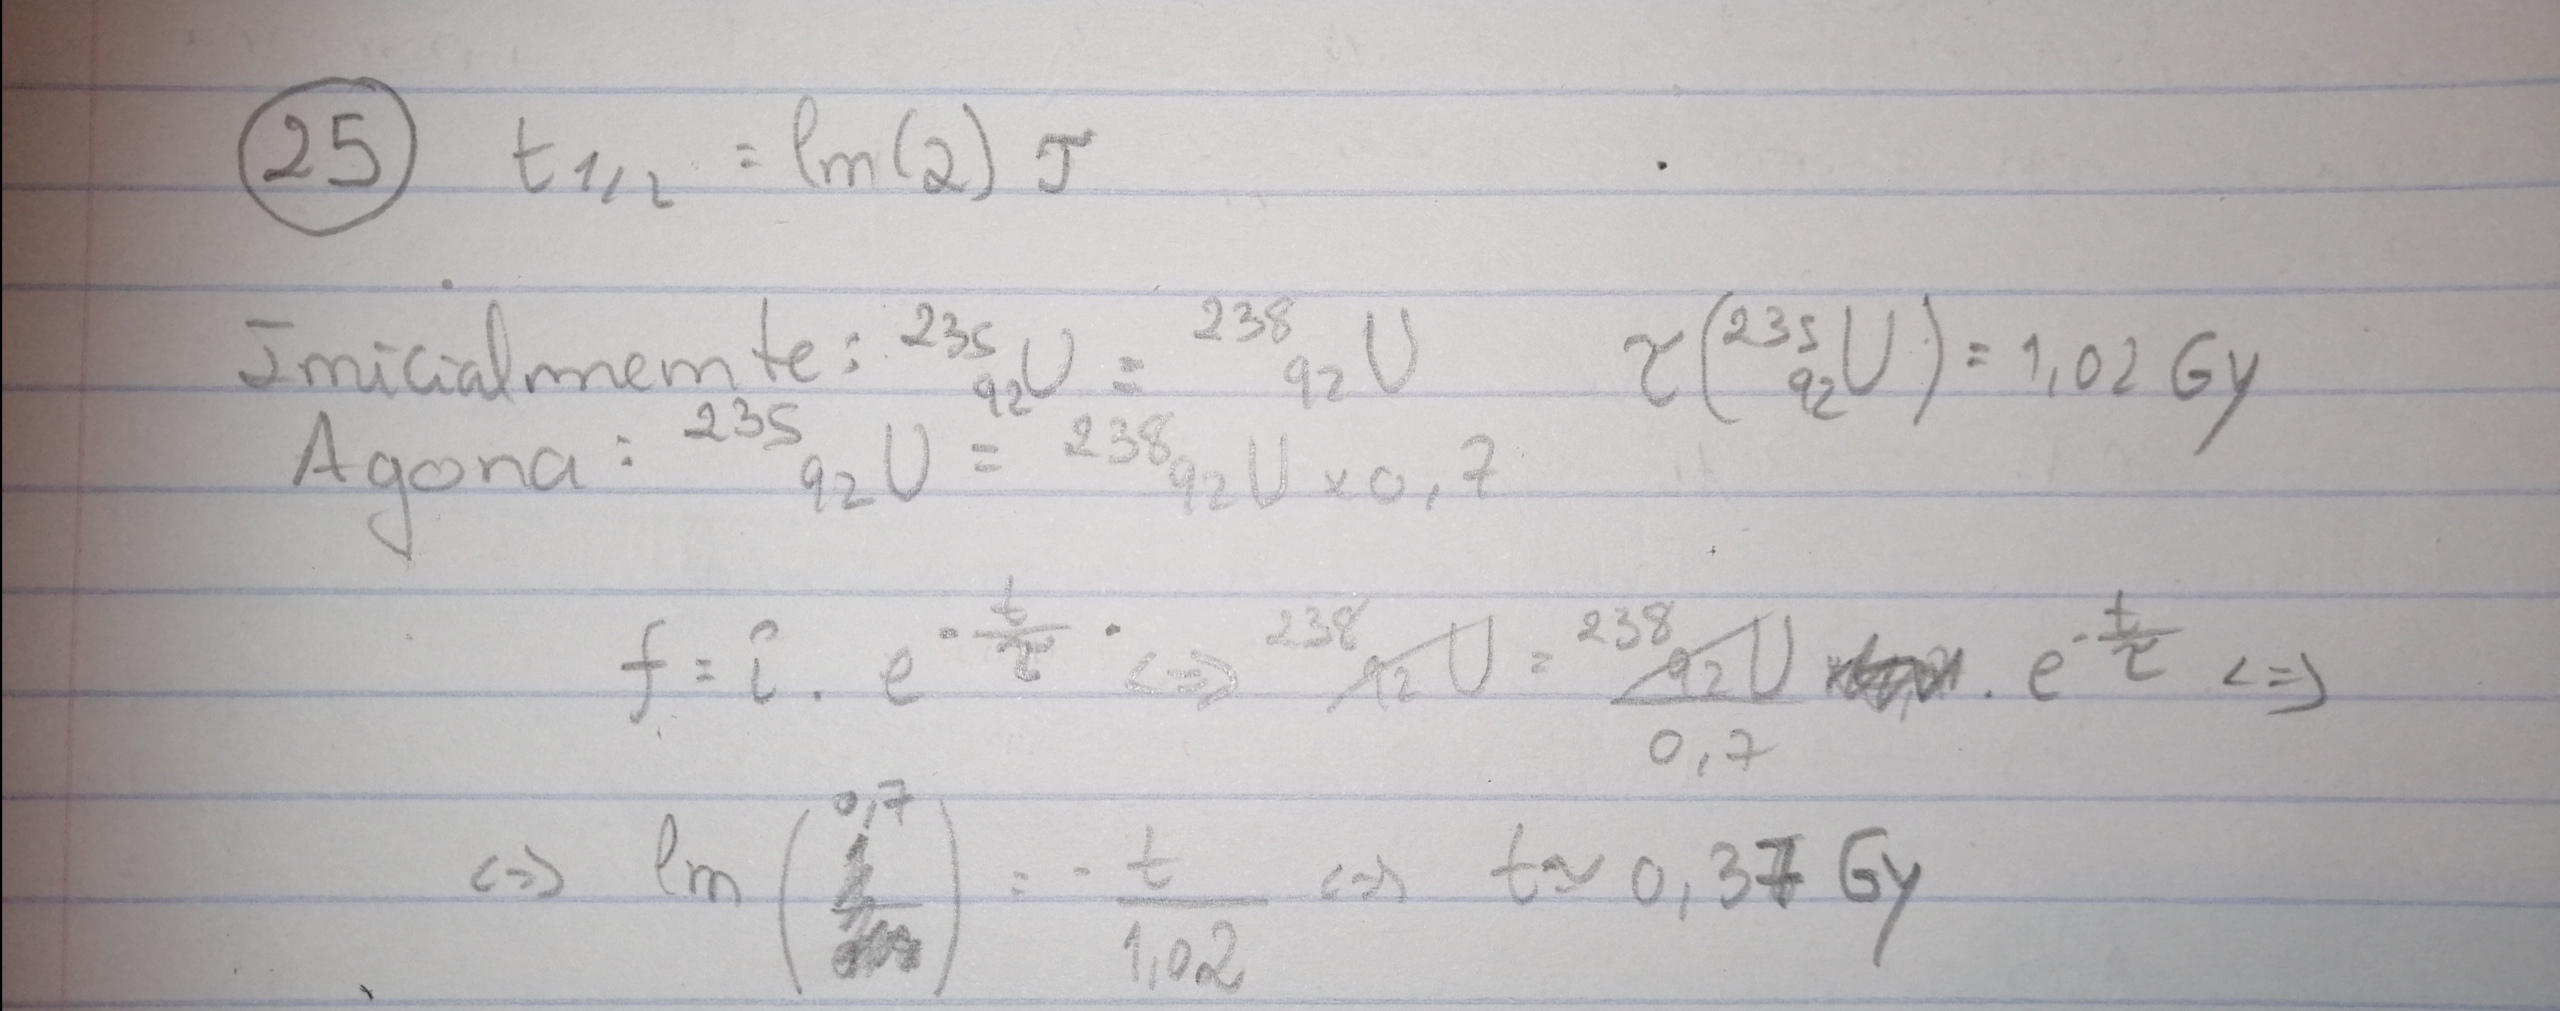 25 t₁/₂ = ln(2) τ
Inicialmente: ²³⁵₉₂U = ²³⁸₉₂U τ(²³⁵₉₂U) = 1,02 Gy
Agora: ²³⁵₉₂U = ²³⁸₉₂U × 0,7
f = i . e^(-t/τ) <=> ²³⁸₉₂U = ²³⁸₉₂U/0,7 . e^(-t/τ) <=>
<=> ln(0,7) = - t/1,02 <=> t ≈ 0,37 Gy